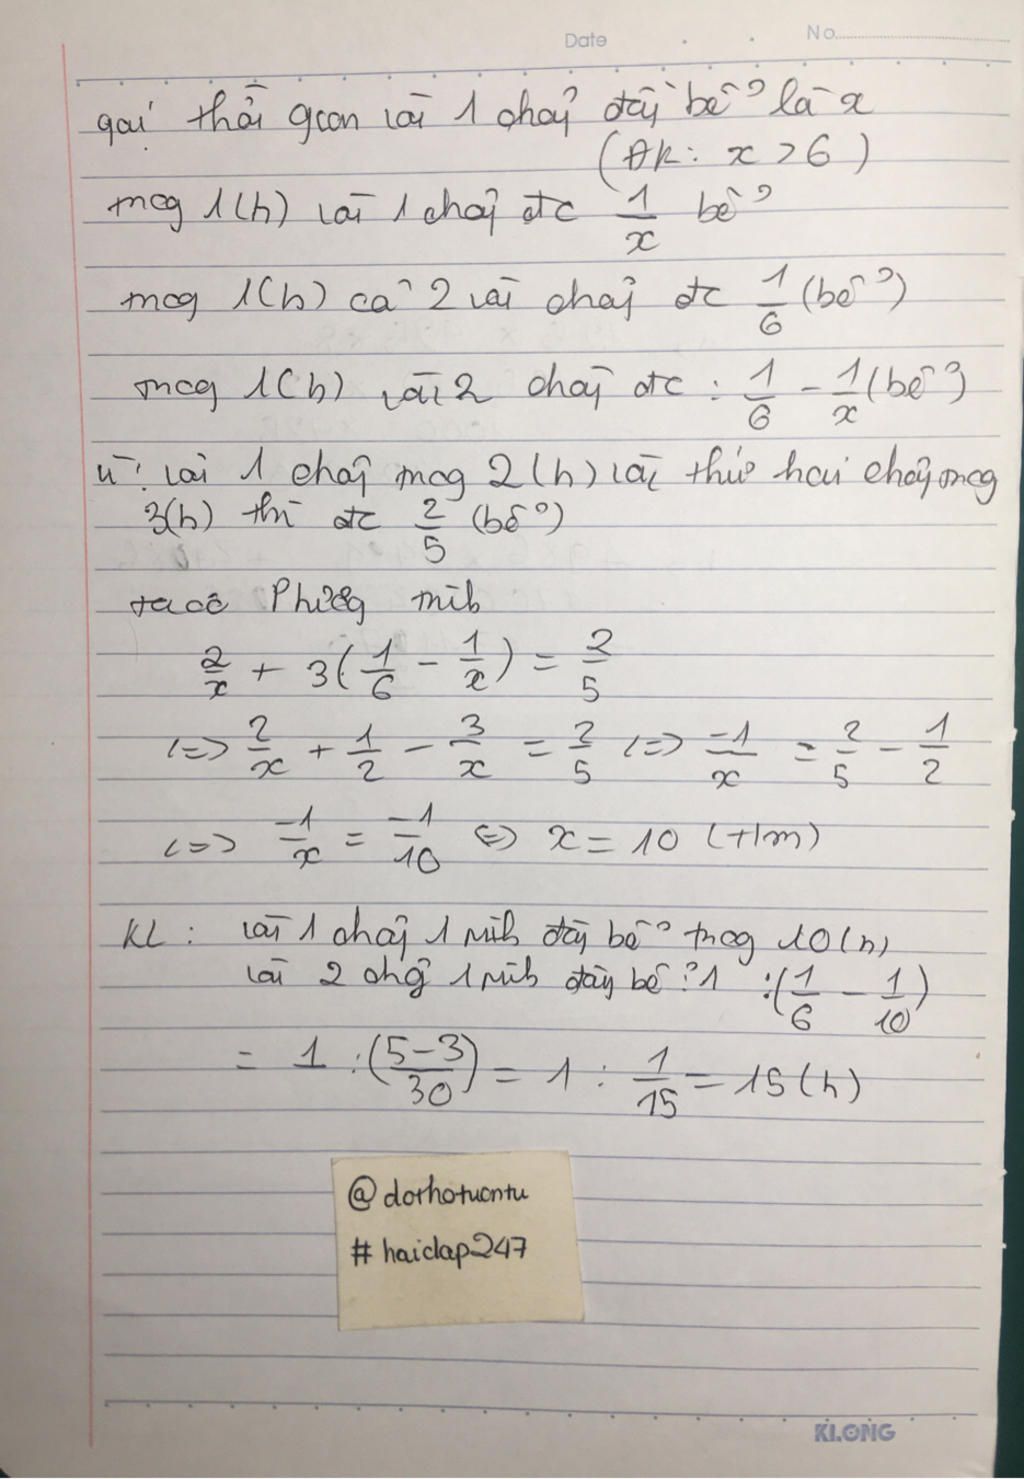 Date No
gọi thời gian vòi 1 chảy đầy bể là x
(ĐK: x > 6)
mog 1(h) vòi 1 chảy đc 1/x bể
mog 1(h) cả 2 vòi chảy đc 1/6 (bể)
mog 1(h) vòi 2 chảy đc : 1/6 - 1/x (bể)
vì vòi 1 chảy mog 2(h) vòi thứ hai chảy mog
3(h) thì đc 2/5 (bể)
ta có Phương mih
2/x + 3(1/6 - 1/x) = 2/5
<=> 2/x + 1/2 - 3/x = 2/5 <=> -1/x = 2/5 - 1/2
<=> -1/x = -1/10 <=> x = 10 (t/m)
KL: vòi 1 chảy 1 mih đầy bể trog 10(h)
vòi 2 chảy 1 mih đầy bể : 1 : (1/6 - 1/10)
= 1 : (5-3/30) = 1 : 1/15 = 15(h)
@dorhotuontu
#haidap247
KLONG